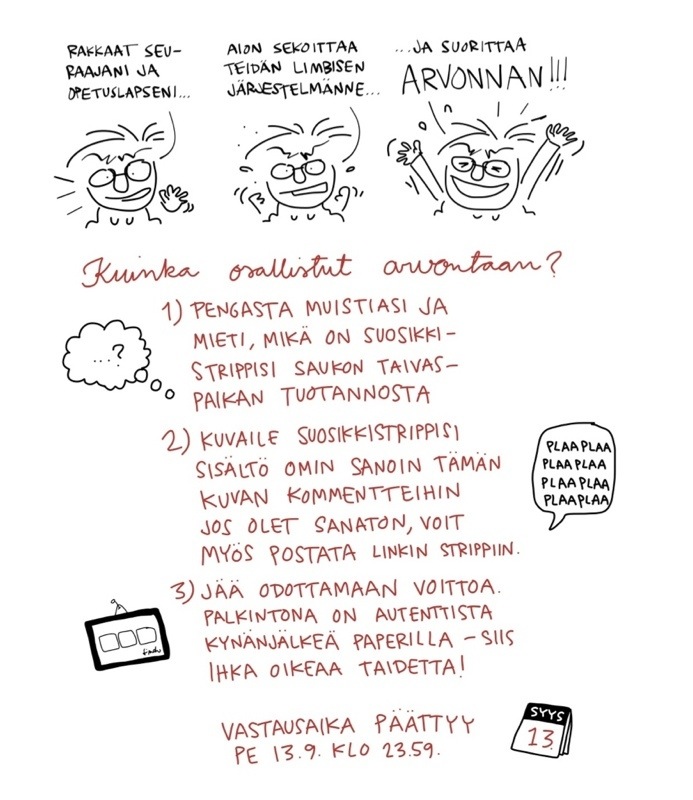 RAKKAAT SEU-
RAAJANI JA
OPETUSLAPSENI...
AION SEKOITTAA
TEIDÄN LIMBISEN
JÄRJESTELMÄNNE...
...JA SUORITTAA
ARVONNAN!!!
Kuinka osallistut arvontaan?
1) PENGASTA MUISTIASI JA
MIETI, MIKÄ ON SUOSIKKI-
STRIPPISI SAUKON TAIVAS-
PAIKAN TUOTANNOSTA
...?
2) KUVAILE SUOSIKKISTRIPPISI
SISÄLTÖ OMIN SANOIN TÄMÄN
KUVAN KOMMENTTEIHIN
JOS OLET SANATON, VOIT
MYÖS POSTATA LINKIN STRIPPIIN.
PLAAPLAA
PLAAPLAA
PLAAPLAA
PLAAPLAA
3) JÄÄ ODOTTAMAAN VOITTOA.
PALKINTONA ON AUTENTTISTA
KYNÄNJÄLKEÄ PAPERILLA – SIIS
IHKA OIKEAA TAIDETTA!
VASTAUSAIKA PÄÄTTYY
PE 13.9. KLO 23.59.
SYYS
13.